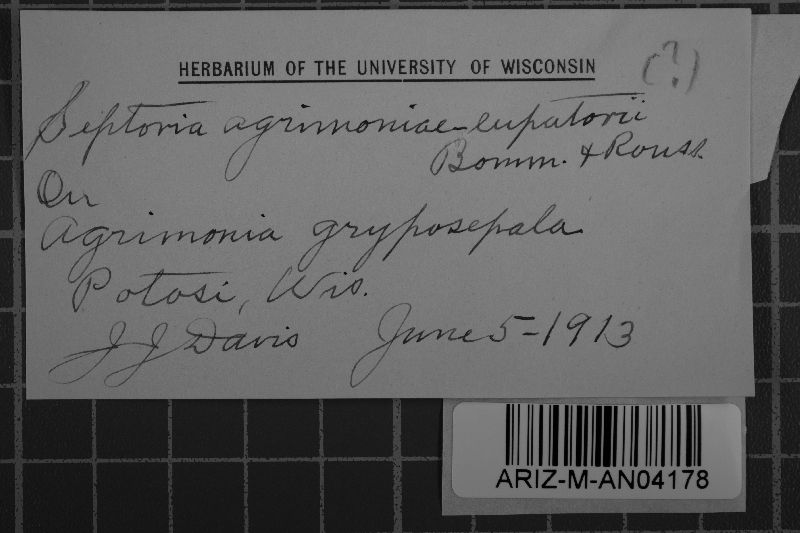 HERBARIUM OF THE UNIVERSITY OF WISCONSIN (?)
Septoria agrimoniae-eupatorii
Bomm. & Rouss.
On
Agrimonia gryposepala
Potosi, Wis.
J J Davis June 5-1913
ARIZ-M-AN04178